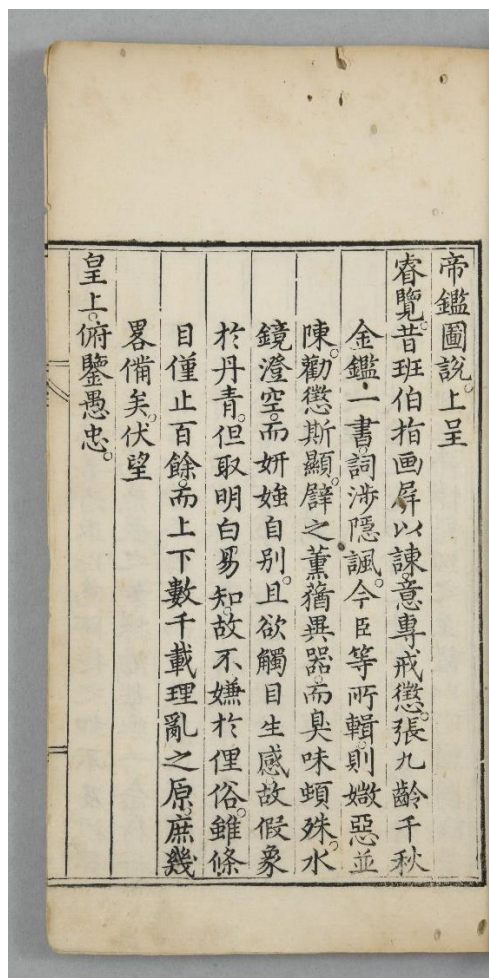 帝鑑圖說。上呈
睿覽。昔班伯指画屏以諌。意專戒懲。張九齡千秋
金鑑一書。詞涉隱諷。今臣等所輯。則媺惡並
陳。勸懲斯顯。譬之薰蕕異器。而臭味頓殊。水
鏡澄空。而妍媸自别。且欲觸目生感。故假象
於丹青。但取明白昜知。故不嫌於俚俗。雖條
目僅止百餘。而上下數千載理亂之原。庶幾
畧備矣。伏望
皇上。俯鑒愚忠。